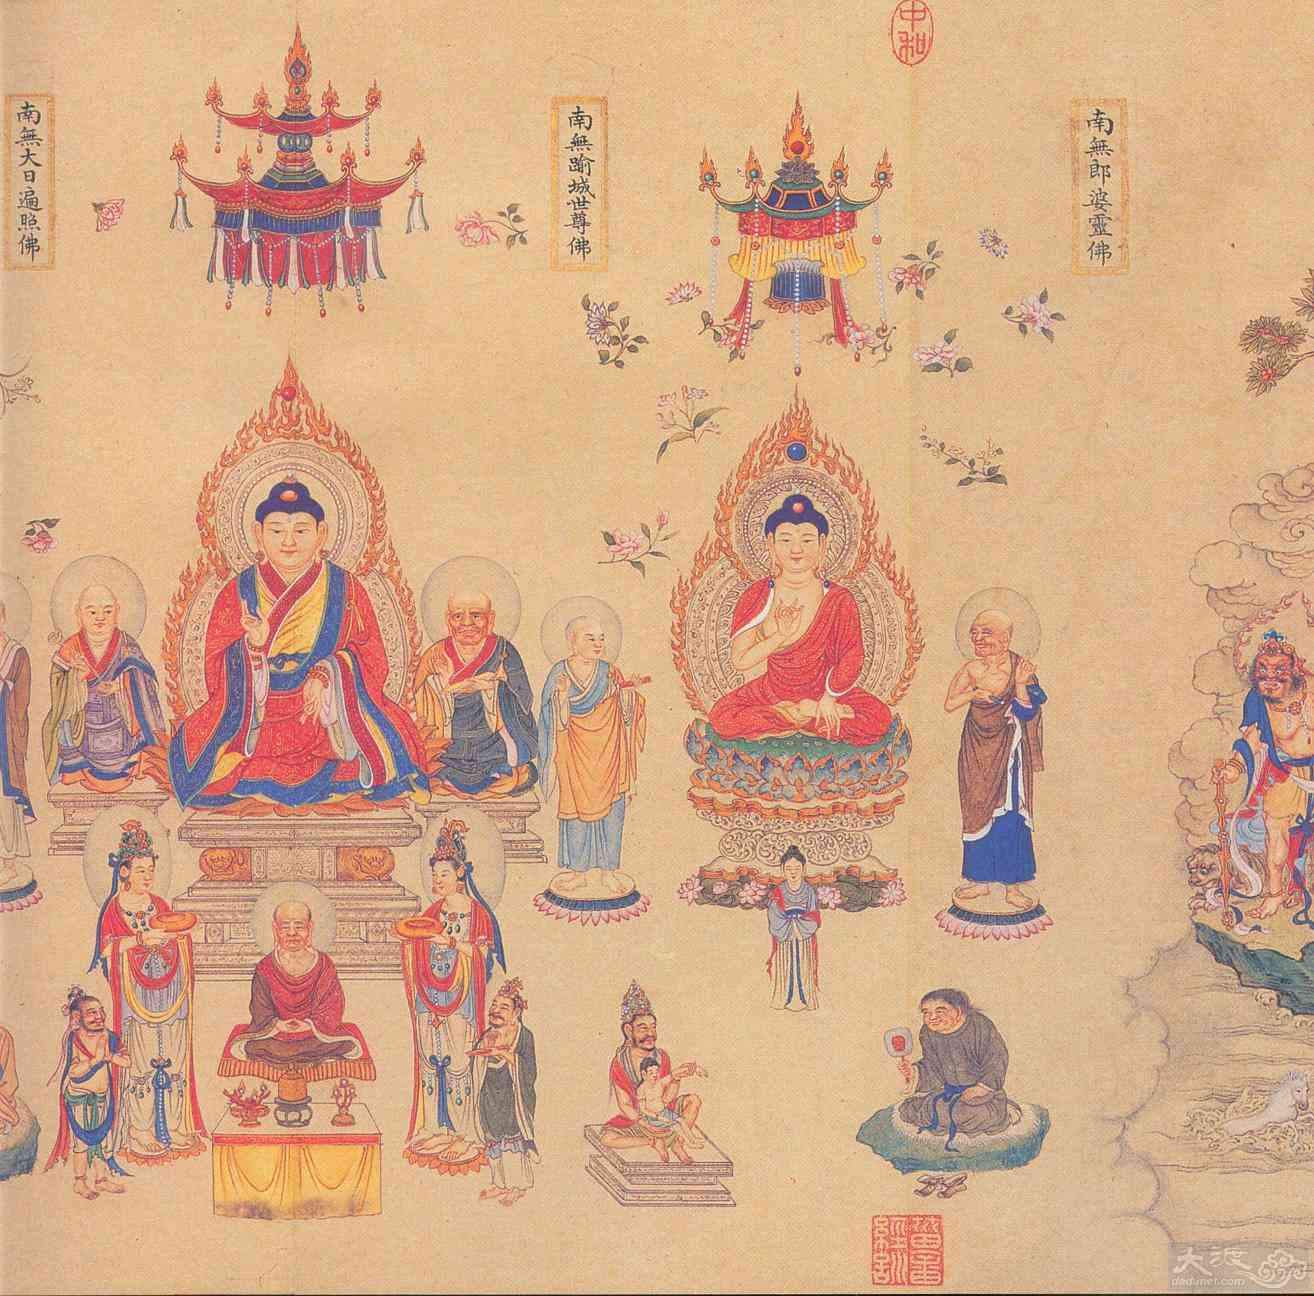 中和
南無郎婆靈佛
南無踰城世尊佛
南無大日遍照佛
菑畬
經訓
大渡
dadunet.com